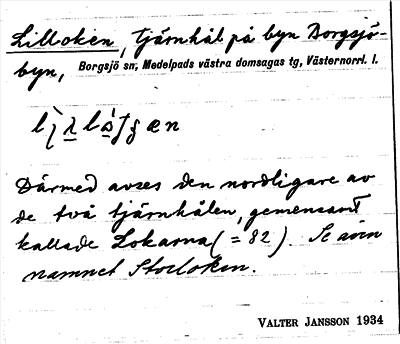 Lilloken, tjärnhål på byn Borgsjö-
byn, Borgsjö sn, Medelpads västra domsagas tg, Västernorrl. l.
Därmed avses den nordligare av
de två tjärnhålen, gemensamt
kallade Lokarna (= 82). Se även
namnet Storloken.
VALTER JANSSON 1934